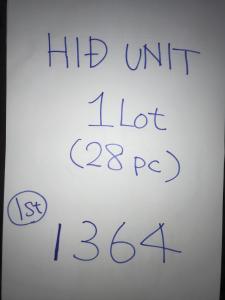 HID UNIT
1 Lot
(28 pc)
1st
1364